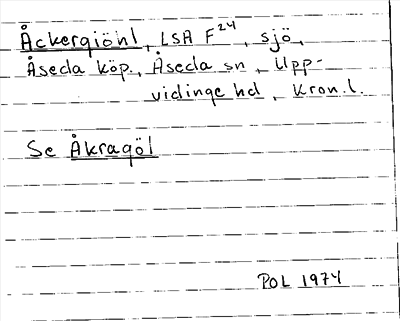 Åckergiöhl, LSA F24, sjö,
Åseda köp., Åseda sn, Upp-
vidinge hd, Kron.l.
Se Åkragöl
POL 1974